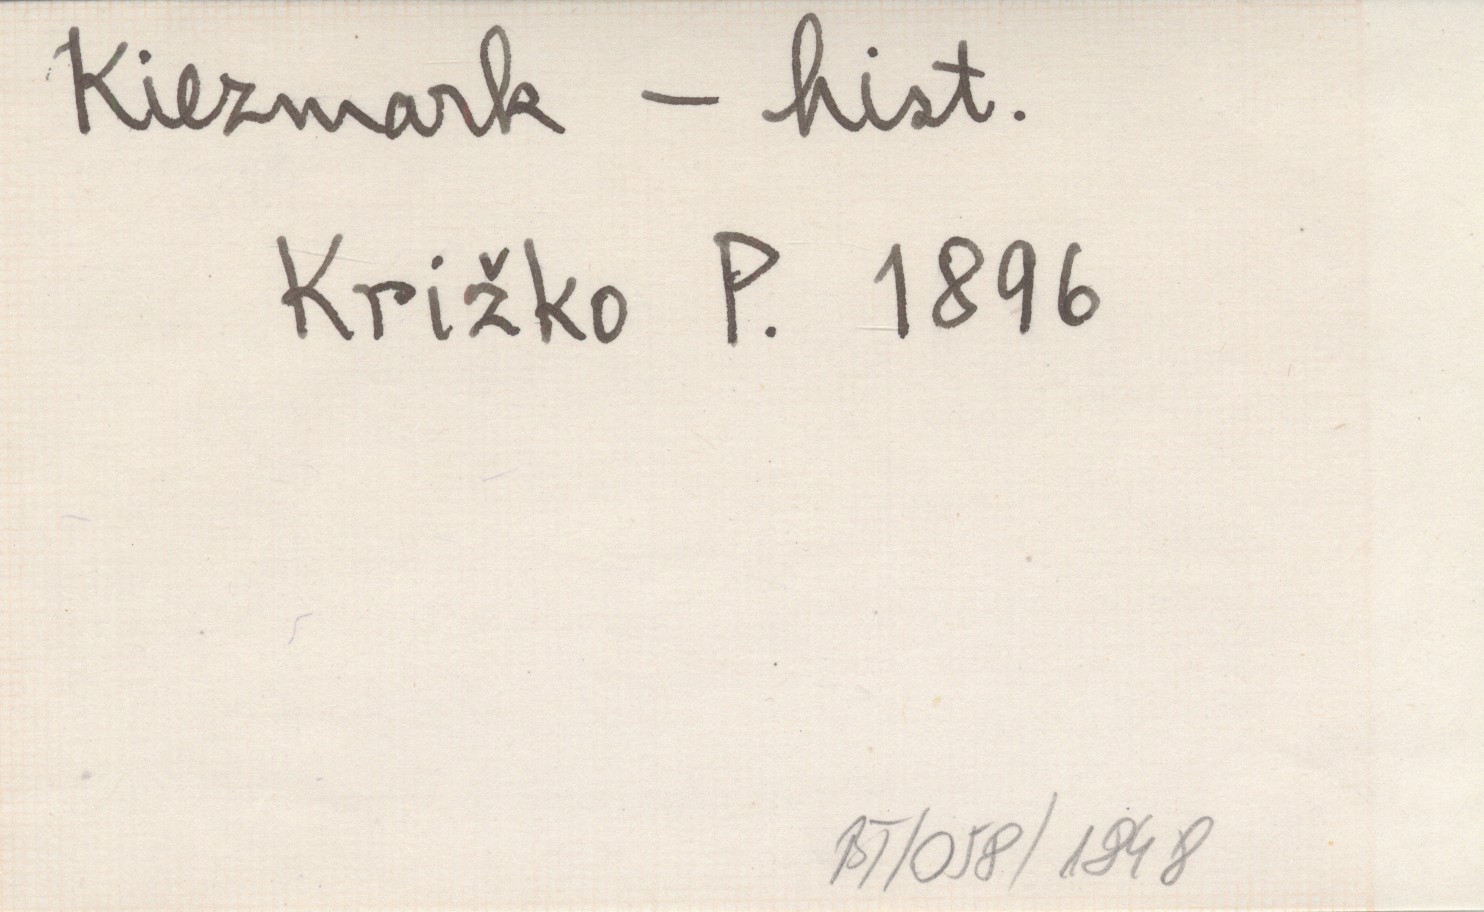 Kiezmark – hist.
Križko P. 1896
BT/058/1848